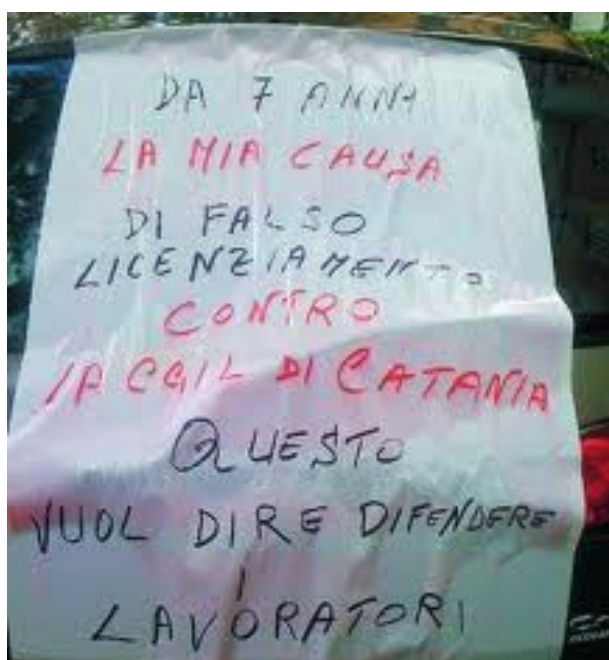 DA 7 ANNI
LA MIA CAUSA
DI FALSO
LICENZIAMENTO
CONTRO
LA CGIL DI CATANIA
QUESTO
VUOL DIRE DIFENDERE
I
LAVORATORI